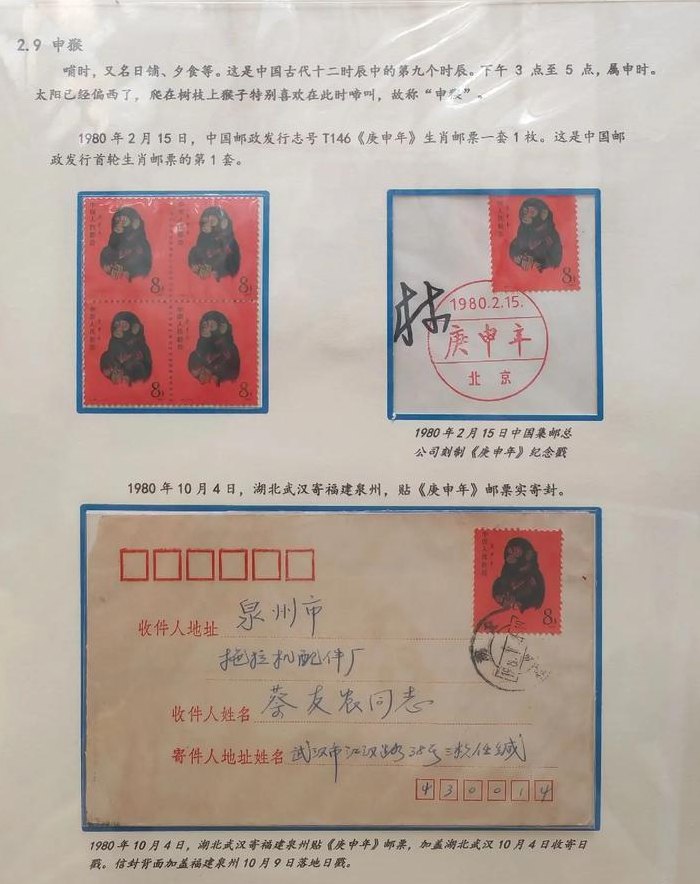 2.9 申猴
哺时，又名日铺、夕食等。这是中国古代十二时辰中的第九个时辰。下午 3 点至 5 点，属申时。
太阳已经偏西了，爬在树枝上猴子特别喜欢在此时啼叫，故称“申猴”。
1980 年 2 月 15 日，中国邮政发行志号 T146《庚申年》生肖邮票一套 1 枚。这是中国邮
政发行首轮生肖邮票的第 1 套。
中国人民邮政
8分
中国人民邮政
8分
中国人民邮政
8分
中国人民邮政
8分
中国人民邮政
8分
林
1980.2.15.
庚申年
北京
1980 年 2 月 15 日中国集邮总
公司刻制《庚申年》纪念戳
1980 年 10 月 4 日，湖北武汉寄福建泉州，贴《庚申年》邮票实寄封。
中国人民邮政
8分
收件人地址 泉州市
拖拉机配件厂
收件人姓名 蔡友农同志
寄件人地址姓名 武汉市江汉路35号
430014
1980 年 10 月 4 日，湖北武汉寄福建泉州贴《庚申年》邮票，加盖湖北武汉 10 月 4 日收寄日
戳。信封背面加盖福建泉州 10 月 9 日落地日戳。